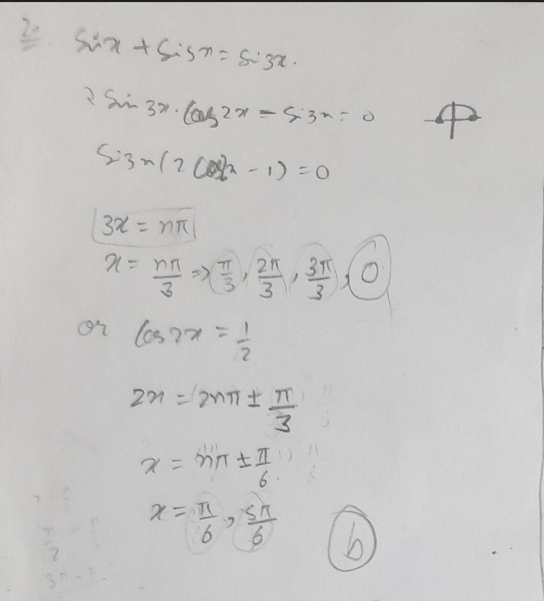 2.
Sinx + Si5x = Si3x.
2 Sin 3x. Cos 2x - Si3x = 0
Si3x (2 Cos2x - 1) = 0
3x = nπ
x = nπ/3 => π/3, 2π/3, 3π/3, 0
or Cos 2x = 1/2
2x = 2nπ ± π/3
x = nπ ± π/6
x = π/6, 5π/6
b